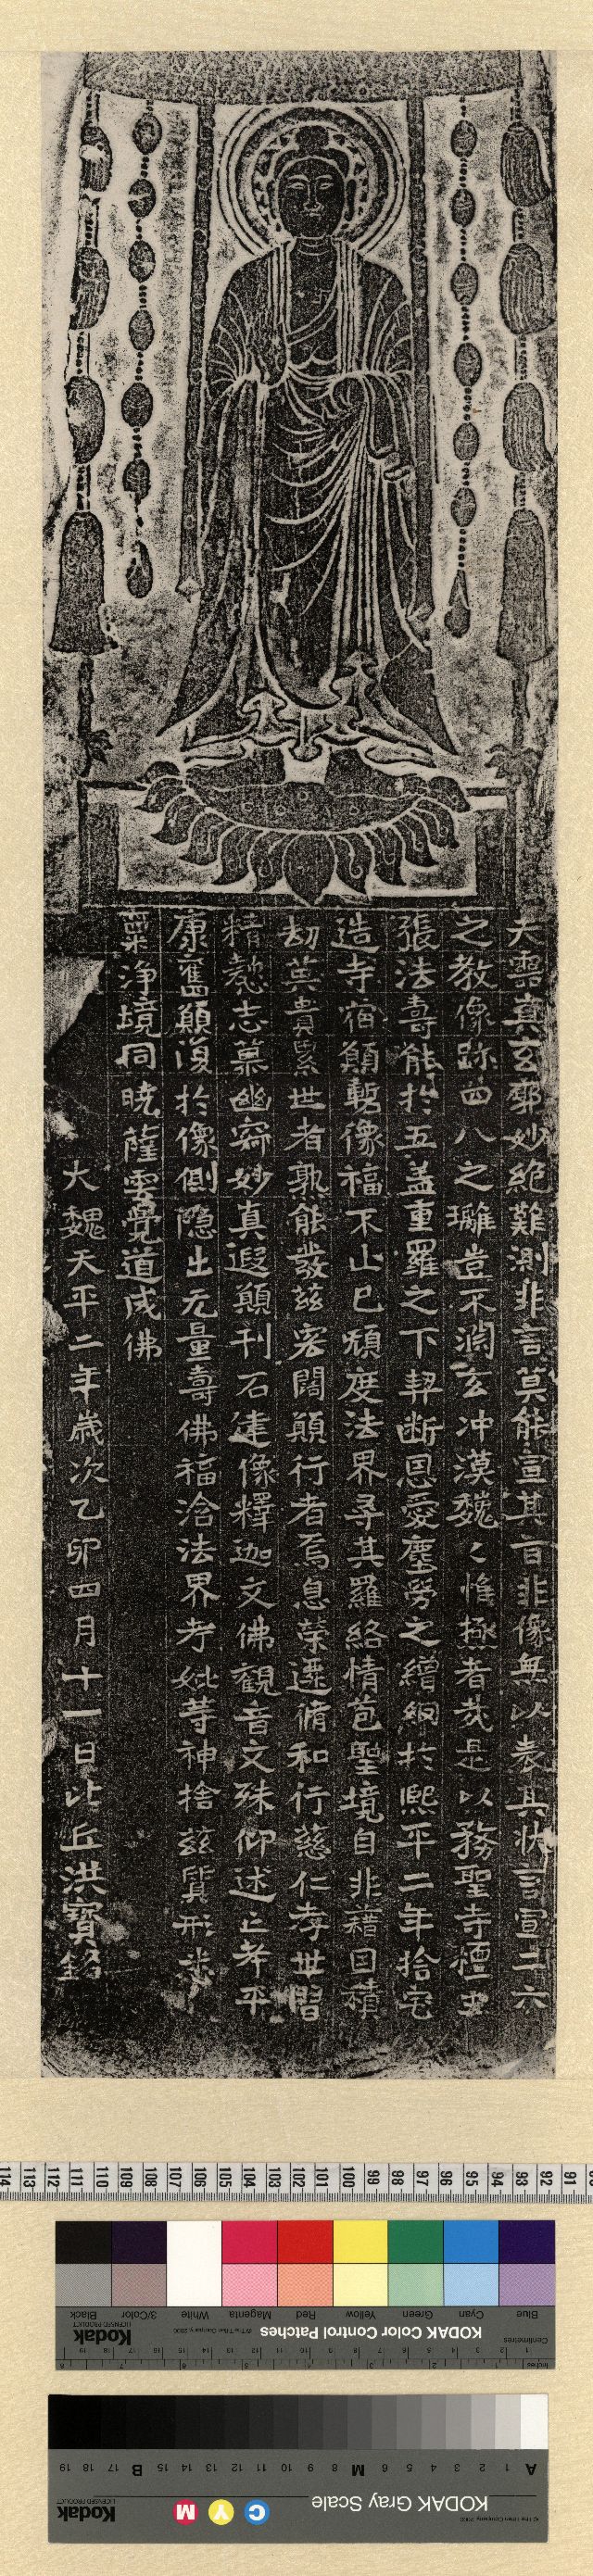 大靈真玄廓妙絶難測非言莫能宣其旨非像無以表其狀言宣二六
之教像跡四八之璣豈不淵玄冲漠巍〻惟極者哉是以務聖寺檀主
張法壽能於五蓋重羅之下契断恩愛塵勞之繒網於熙平二年捨宅
造寺宿願暫像福不止已頑度法界尋其羅絡情苞聖境自非藉因積
劫英貴累世者孰能發兹宏闊願行者焉息榮遷脩和行慈仁孝世習
精懃志慕幽宗妙真遐願刊石建像釋迦文佛觀音文殊仰述亡考平
康舊願復於像側隐出无量壽佛福洽法界考妣等神捨兹質形悉
稟浄境同曉薩雲覺道成佛
大魏天平二年歲次乙卯四月十一日比丘洪寶銘
114 113 112 111 110 109 108 107 106 105 104 103 102 101 100 99 98 97 96 95 94 93 92 91
Blue Cyan Green Yellow Red Magenta White 3/Color Black
KODAK Color Control Patches
Kodak
LICENSED PRODUCT
Centimetres
Inches
A 1 2 3 4 5 6 M 8 9 10 11 12 13 14 15 B 17 18 19
KODAK Gray Scale
C Y M
Kodak
LICENSED PRODUCT